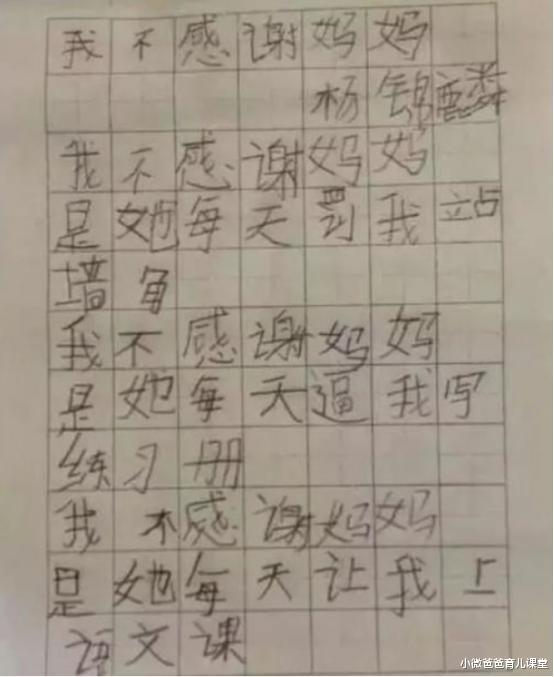 我不感谢妈妈
杨锦麟
我不感谢妈妈
是她每天罚我站
墙角
我不感谢妈妈
是她每天逼我写
练习册
我不感谢妈妈
是她每天让我上
语文课
小微爸爸育儿课堂